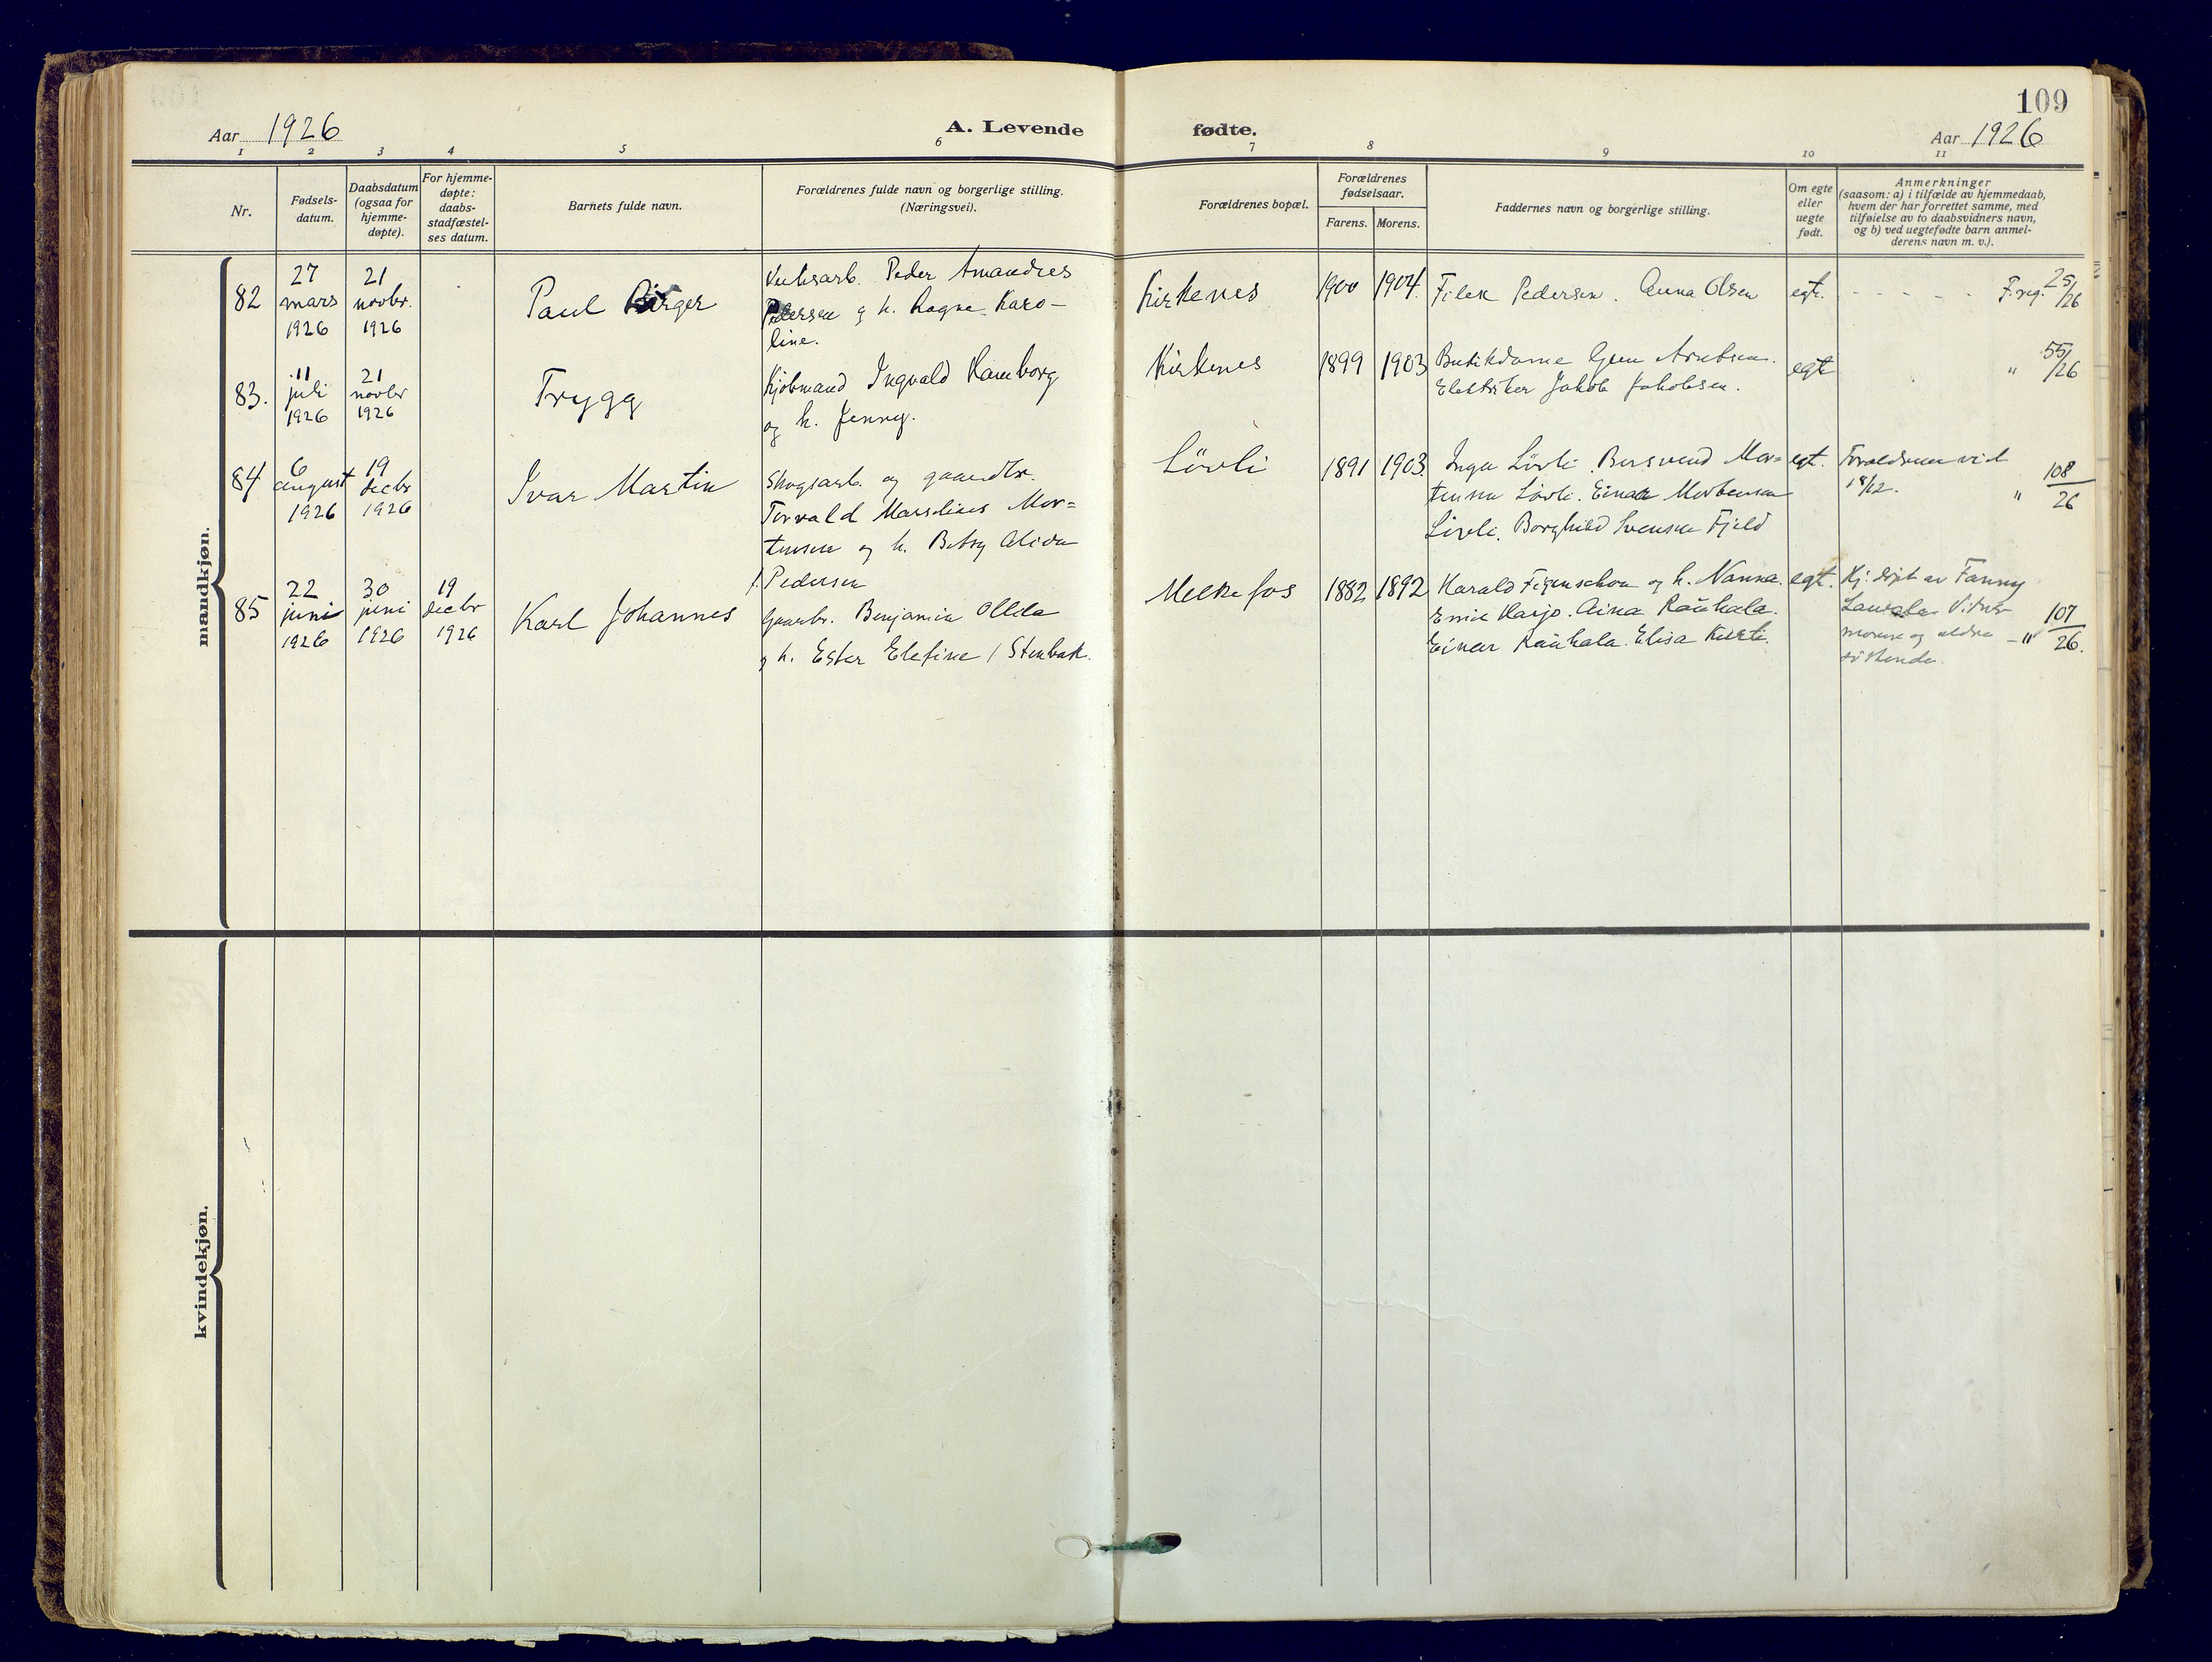 109
Aar 1926
A. Levende fødte.
Aar 1926
1 2 3 4 5 6 7 8 9 10 11
Nr.
Fødsels-
datum.
Daabsdatum
(ogsaa for
hjemme-
døpte).
For hjemme-
døpte:
daabs-
stadfæstel-
ses datum.
Barnets fulde navn.
Forældrenes fulde navn og borgerlige stilling.
(Næringsvei).
Forældrenes bopæl.
Forældrenes
fødselsaar.
Farens. Morens.
Faddernes navn og borgerlige stilling.
Om egte
eller
uegte
født.
Anmerkninger
(saasom: a) i tilfælde av hjemmedaab,
hvem der har forrettet samme, med
tilføielse av to daabsvidners navn,
og b) ved uegtefødte barn anmel-
derens navn m. v.).
mandkjøn.
82
27
mars
1926
21
novbr.
1926
Paul Birger
Peder Amandus
Pedersen og h. Ragna Karo-
line.
Kirkenes
1900 1904
Pedersen. Anna Olsen
egte.
F.reg. 25/26
83.
11
juli
1926
21
novbr
1926
Trygg
Kjøbmand Ingvald Ramborg
og h. Jenny.
Kirkenes
1899 1903
Butikdame Gun Arntsen.
Elektriker Jakob Jakobsen.
egte
" 55/26
84
6
august
1926
19
decbr
1926
Ivar Martin
Skogsarb. og gaardbr.
Torvald Marselius Mor=
tensen og h. Betsy Alida
f. Pedersen
Lövli
1891 1903
Inga Lövli. Bersvend Mor=
tensen Lövli. Einar Mortensen
Lövli. Borghild Svensen Fjeld
egt.
Foreldrene vid
18/12.
" 108/26
85
22
juni
1926
30
juni
1926
19
decbr
1926
Karl Johannes
Gaardbr. Benjamin Ollila
og h. Ester Elefine f Stenbak.
Melkefos
1882 1892
Harald Figenschou og h. Nanna.
Emil Harjo. Aina Rauhala.
Einar Rauhala. Elisa Kurti.
egt.
Hj: døpt av Fanny
Laurola. Vidner
moren og eldre
söskende.
- " 107/26.
kvindekjøn.